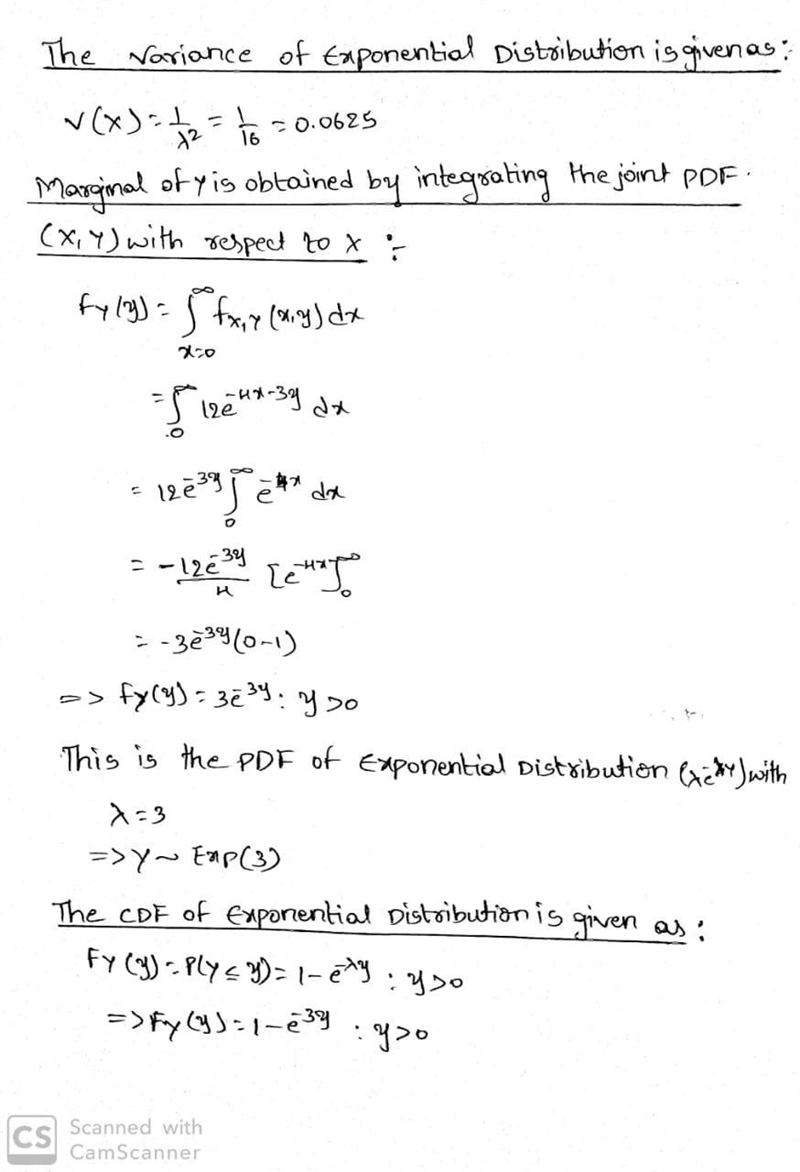 The Variance of Exponential Distribution is given as:
V(X) = 1/λ² = 1/16 = 0.0625
Marginal of Y is obtained by integrating the joint PDF.
(X, Y) with respect to X :-
fy(y) = ∫_{x=0}^{∞} f_{X,Y}(x,y) dx
= ∫_0^∞ 12e^{-4x-3y} dx
= 12e^{-3y} ∫_0^∞ e^{-4x} dx
= -12e^{-3y}/4 [e^{-4x}]_0^∞
= -3e^{-3y}(0-1)
=> fy(y) = 3e^{-3y} : y>0
This is the PDF of Exponential Distribution (λe^{-λy}) with
λ=3
=> Y ~ Exp(3)
The CDF of Exponential Distribution is given as:
Fy(y) = P(Y ≤ y) = 1-e^{-λy} : y>0
=> Fy(y) = 1-e^{-3y} : y>0
CS Scanned with
CamScanner